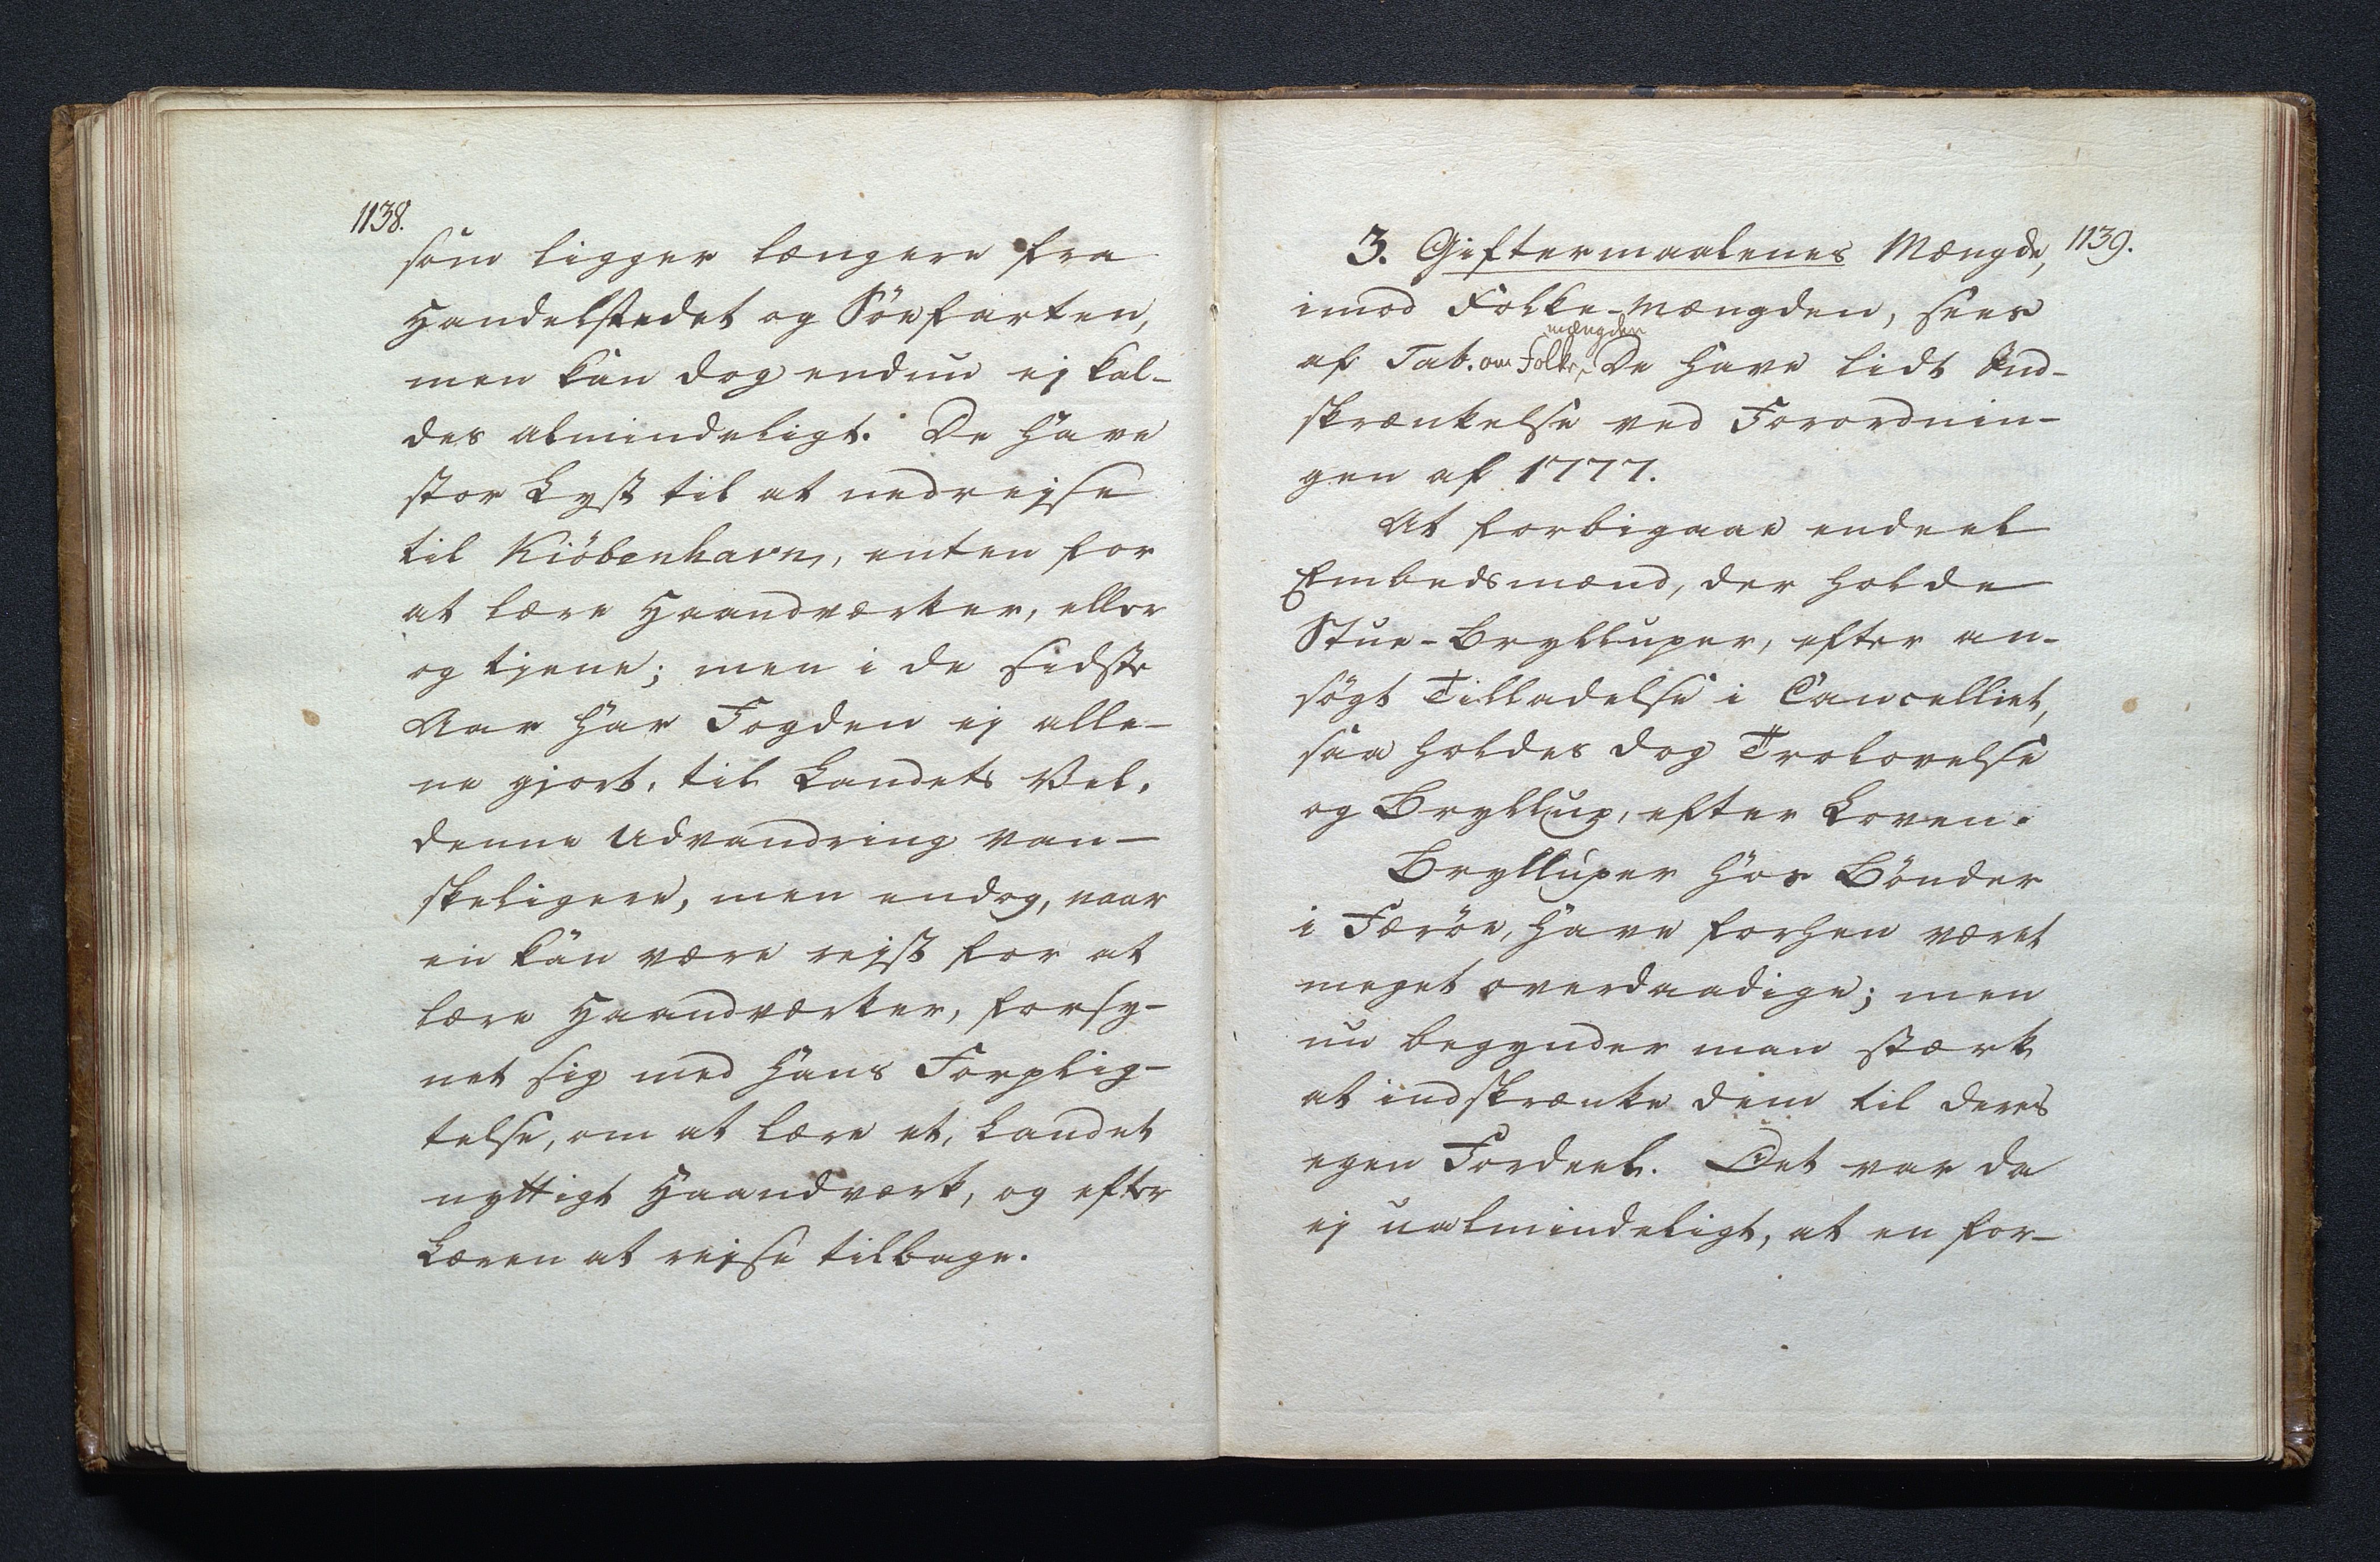 1138.
som ligger længere fra
Handelstedet og Söefarten,
men kan dog endnu ej kal-
des almindeligt. De have
stor Lyst til at nedrejse
til Kiöbenhavn, enten for
at lære Haandværker, eller
og tjene; men i de sidste
Aar har Fogden ej alle-
ne gjort, til Landets Vel,
denne Udvandring van-
skeligere, men endog, naar
en kan være rejst for at
lære Haandværker, forsy-
net sig med hans Forplig-
telse, om at lære et, Landet
nyttigt Haandværk, og efter
Læren at rejse tilbage.
1139.
3. Giftermaalenes Mængde,
imod Folke-Mængden, sees
af Tab. om Folke-mængden De have lidt Ind-
skrænkelse ved Forordnin-
gen af 1777.
At forbigaae endeel
Embedsmænd, der holde
Stue-Brylluper, efter an-
sögt Tilladelse i Cancelliet,
saa holdes dog Trolovelse
og Bryllup, efter Loven.
Brylluper hos Bönder
i Færöe, have forhen været
meget overdaadige; men
nu begynder man stærk
at indskrænke dem til deres
egen Fordeel. Det var da
ej ualmindeligt, at en for-